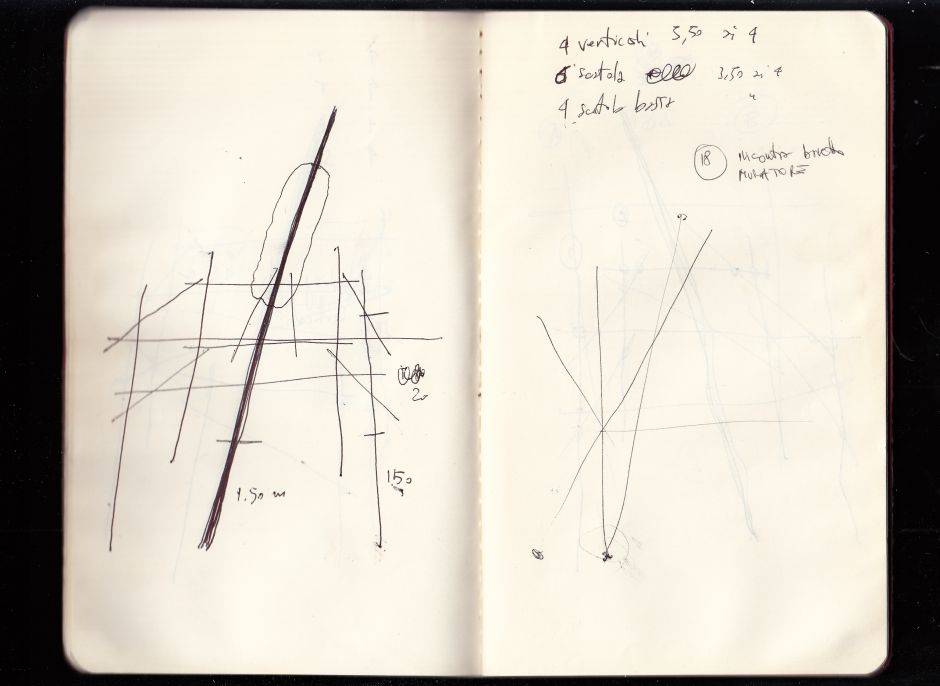 1.50 m
20
150
4 verticali 3,50 xi 4
6 scatola 3,50 xi 4
4 scatola bassa "
18 incontra
MURATORE